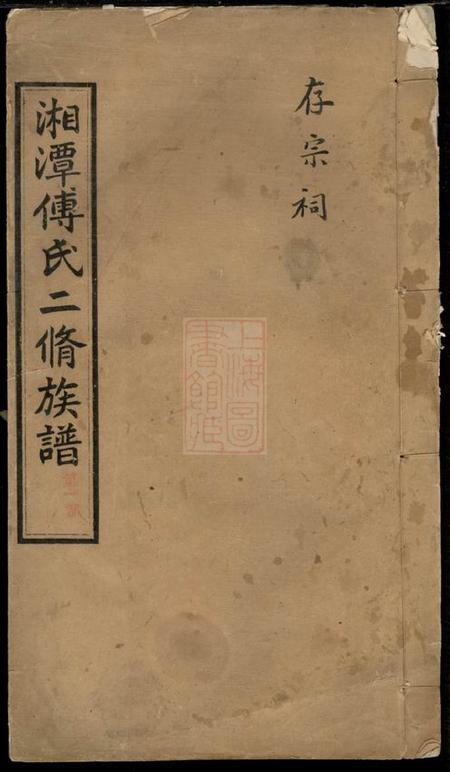 存宗祠
上海圖
書館藏
湘潭傅氏二脩族譜